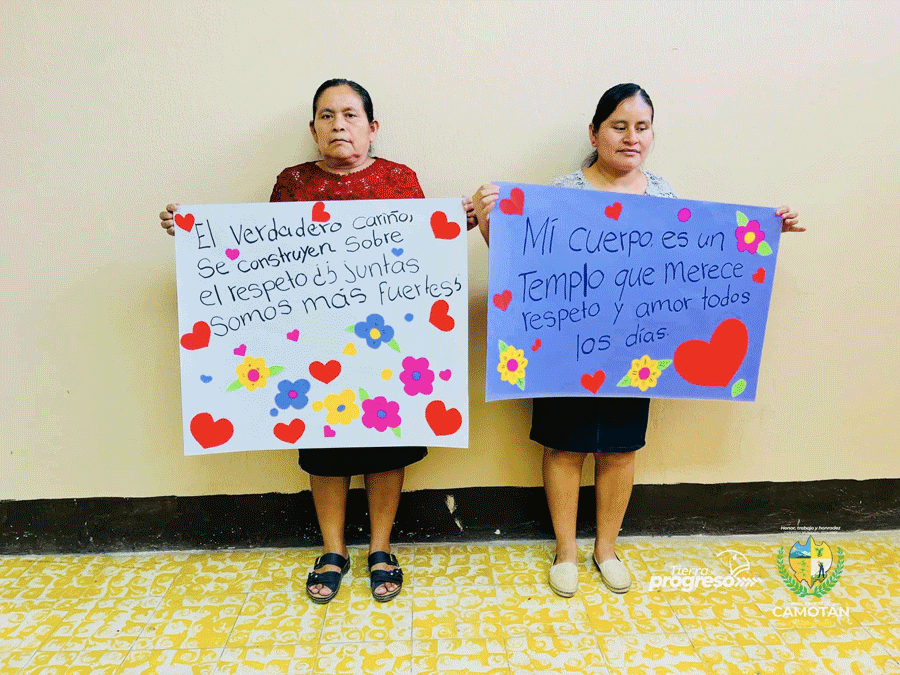 El verdadero cariño,
Se construyen sobre
el respeto ¿¡ juntas
somos más fuertes!
Mí cuerpo es un
Templo que merece
respeto y amor todos
los días.
Tierra
progreso
Honor, trabajo y honradez
CAMOTAN